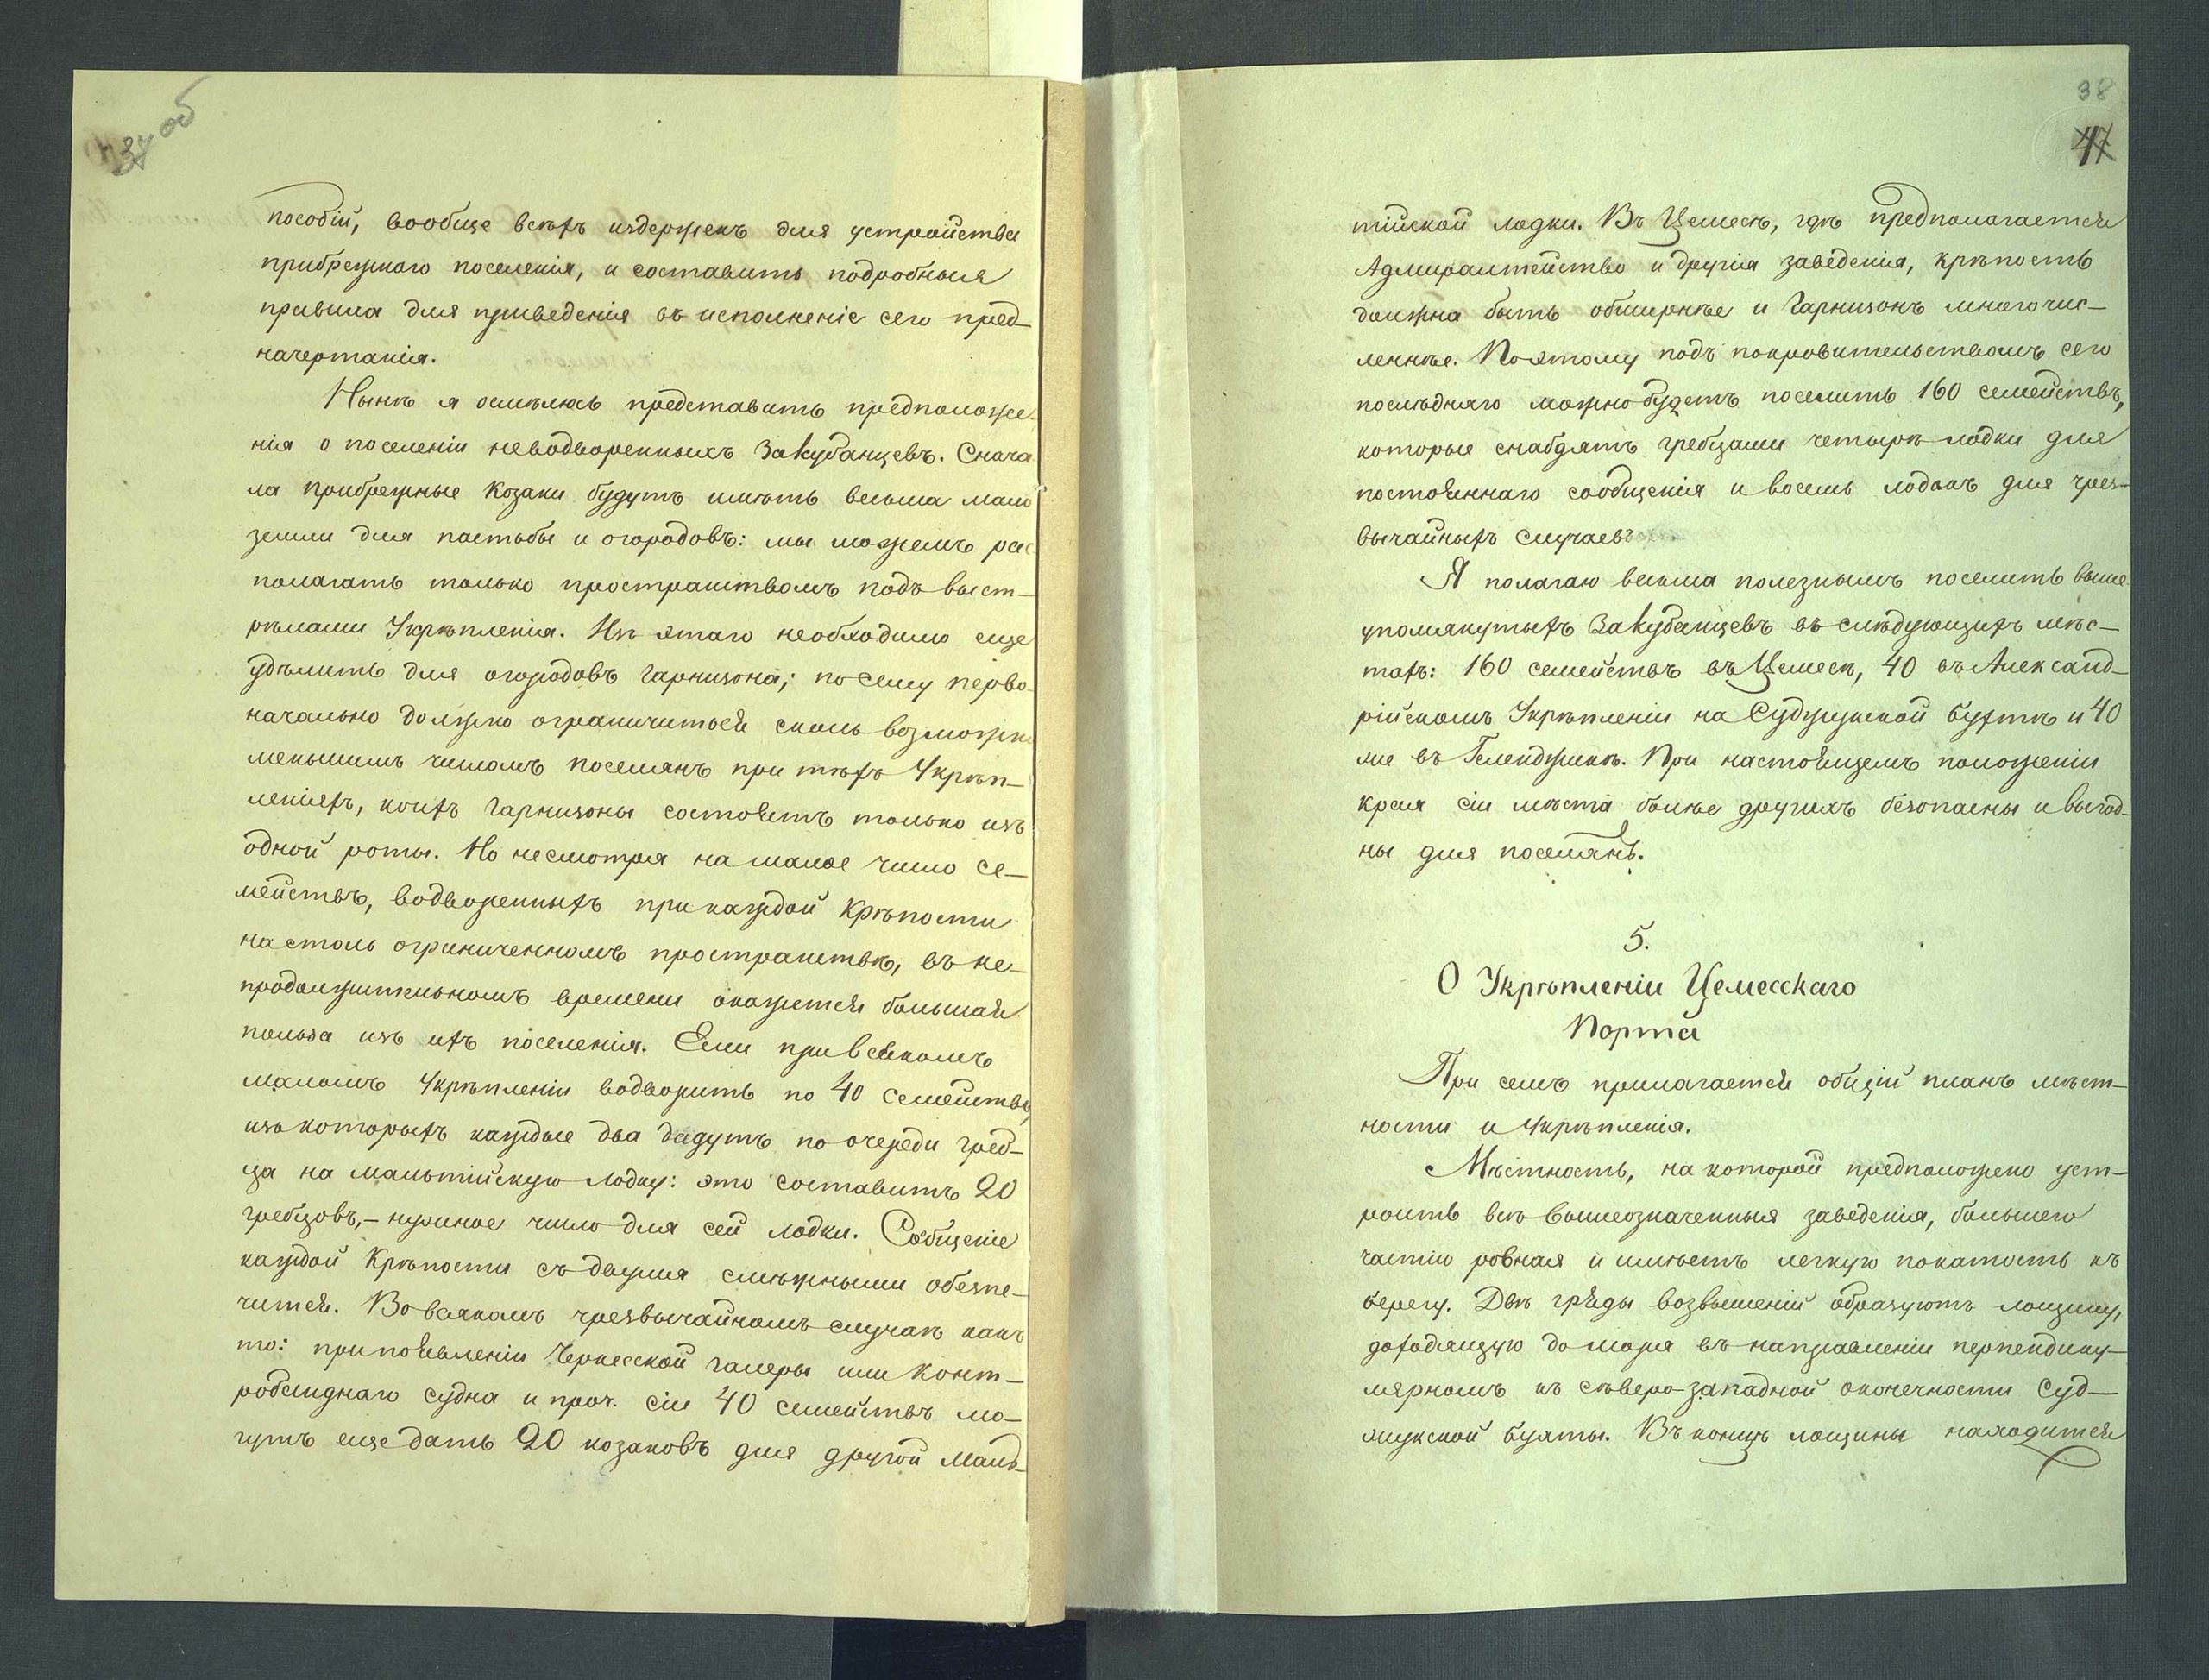 37 об
пособій, вообще всѣхъ издержекъ для устройства
прибрежнаго поселенія, и составить подробныя
правила для приведенія въ исполненіе сего пред-
начертанія.
Нынѣ я осмѣлюсь представить предположе-
нія о поселеніи неводворенныхъ Закубанцевъ. Снача-
ла прибрежные Козаки будутъ имѣть весьма мало
земли для пастьбы и огородовъ: мы можемъ рас-
полагать только пространствомъ подъ выст-
рѣлами Укрѣпленія. Изъ этаго необходимо еще
удѣлить для огородовъ гарнизона; по сему перво-
начально должно ограничиться сколь возможно
меньшимъ числомъ поселянъ при тѣхъ Укрѣп-
леніяхъ, коихъ гарнизоны состоятъ только изъ
одной роты. Но несмотря на малое число се-
мействъ, водворенныхъ при каждой Крѣпости
на столь ограниченномъ пространствѣ, въ не-
продолжительномъ времени окажется большая
польза изъ ихъ поселенія. Если при всякомъ
маломъ Укрѣпленіи водворить по 40 семействъ,
изъ которыхъ каждые два дадутъ по очереди греб-
ца на мальтійскую лодку: это составитъ 20
гребцовъ,- нужное число для сей лодки. Сообщеніе
каждой Крѣпости съ двумя смѣжными обезпе-
чится. Во всякомъ чрезвычайномъ случаѣ какъ
то: при появленіи Черкесской галеры или конт-
робанднаго судна и проч. сіи 40 семействъ мо-
гутъ еще дать 20 козаковъ для другой маль-
38
47
тійской лодки. Въ Цемесѣ, гдѣ предполагается
Адмиралтейство и другія заведенія, крѣпость
должна быть обширнѣе и Гарнизонъ многочис-
леннѣе. Поэтому подъ покровительствомъ сего
послѣдняго можно будетъ поселить 160 семействъ,
которые снабдятъ гребцами четыре лодки для
постояннаго сообщенія и восемь лодокъ для чрез-
вычайныхъ случаевъ.
Я полагаю весьма полезнымъ поселить выше
упомянутыхъ Закубанцевъ въ слѣдующихъ мѣс-
тахъ: 160 семействъ въ Цемесѣ, 40 въ Александ-
рійскомъ Укрѣпленіи на Суджукской бухтѣ и 40
же въ Геленджикѣ. При настоящемъ положеніи
края сіи мѣста болѣе другихъ безопасны и выгод-
ны для поселянъ.
5.
О Укрѣпленіи Цемесскаго
Порта
При семъ прилагается общій планъ мѣст-
ности и Укрѣпленія.
Мѣстность, на которой предположено уст-
роить всѣ вышеозначенныя заведенія, большею
частію ровная и имѣетъ легкую покатость къ
берегу. Двѣ гряды возвышеній образуютъ лощину,
доходящую до моря въ направленіи перпендику-
лярномъ къ сѣверо-западной оконечности Суд-
жукской бухты. Въ концѣ лощины находится